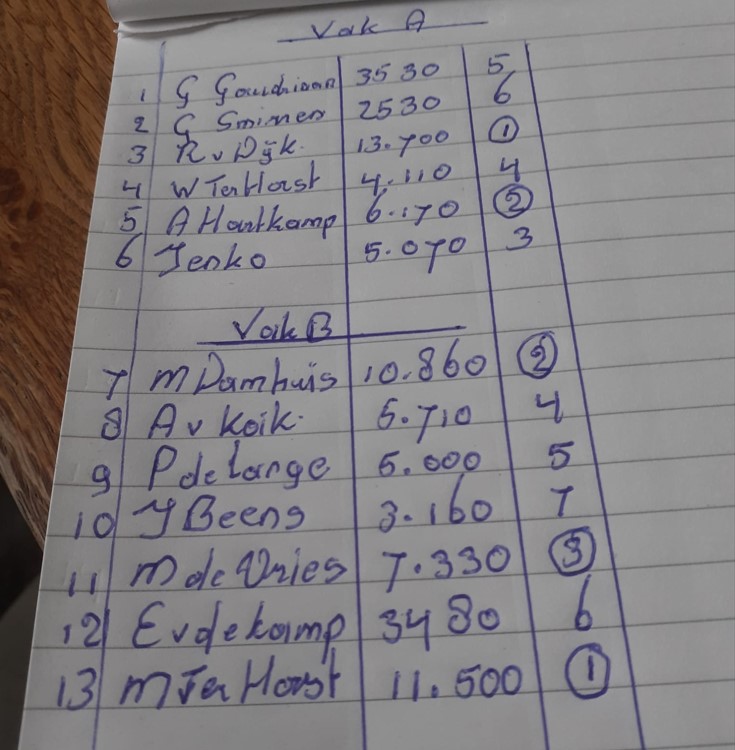 Vak A
1 G Goudriaan 3530 5
2 G Smimer 2530 6
3 R v Dijk. 13.700 1
4 W Ter Horst 4.110 4
5 A Hartkamp 6.170 2
6 Jenko 5.070 3
Vak B
7 M Damhuis 10.860 2
8 A v Koik. 5.710 4
9 P de Lange 5.000 5
10 J Beens 3.160 7
11 M de Vries 7.330 3
12 E vdekamp 3480 6
13 M Ter Horst 11.500 1